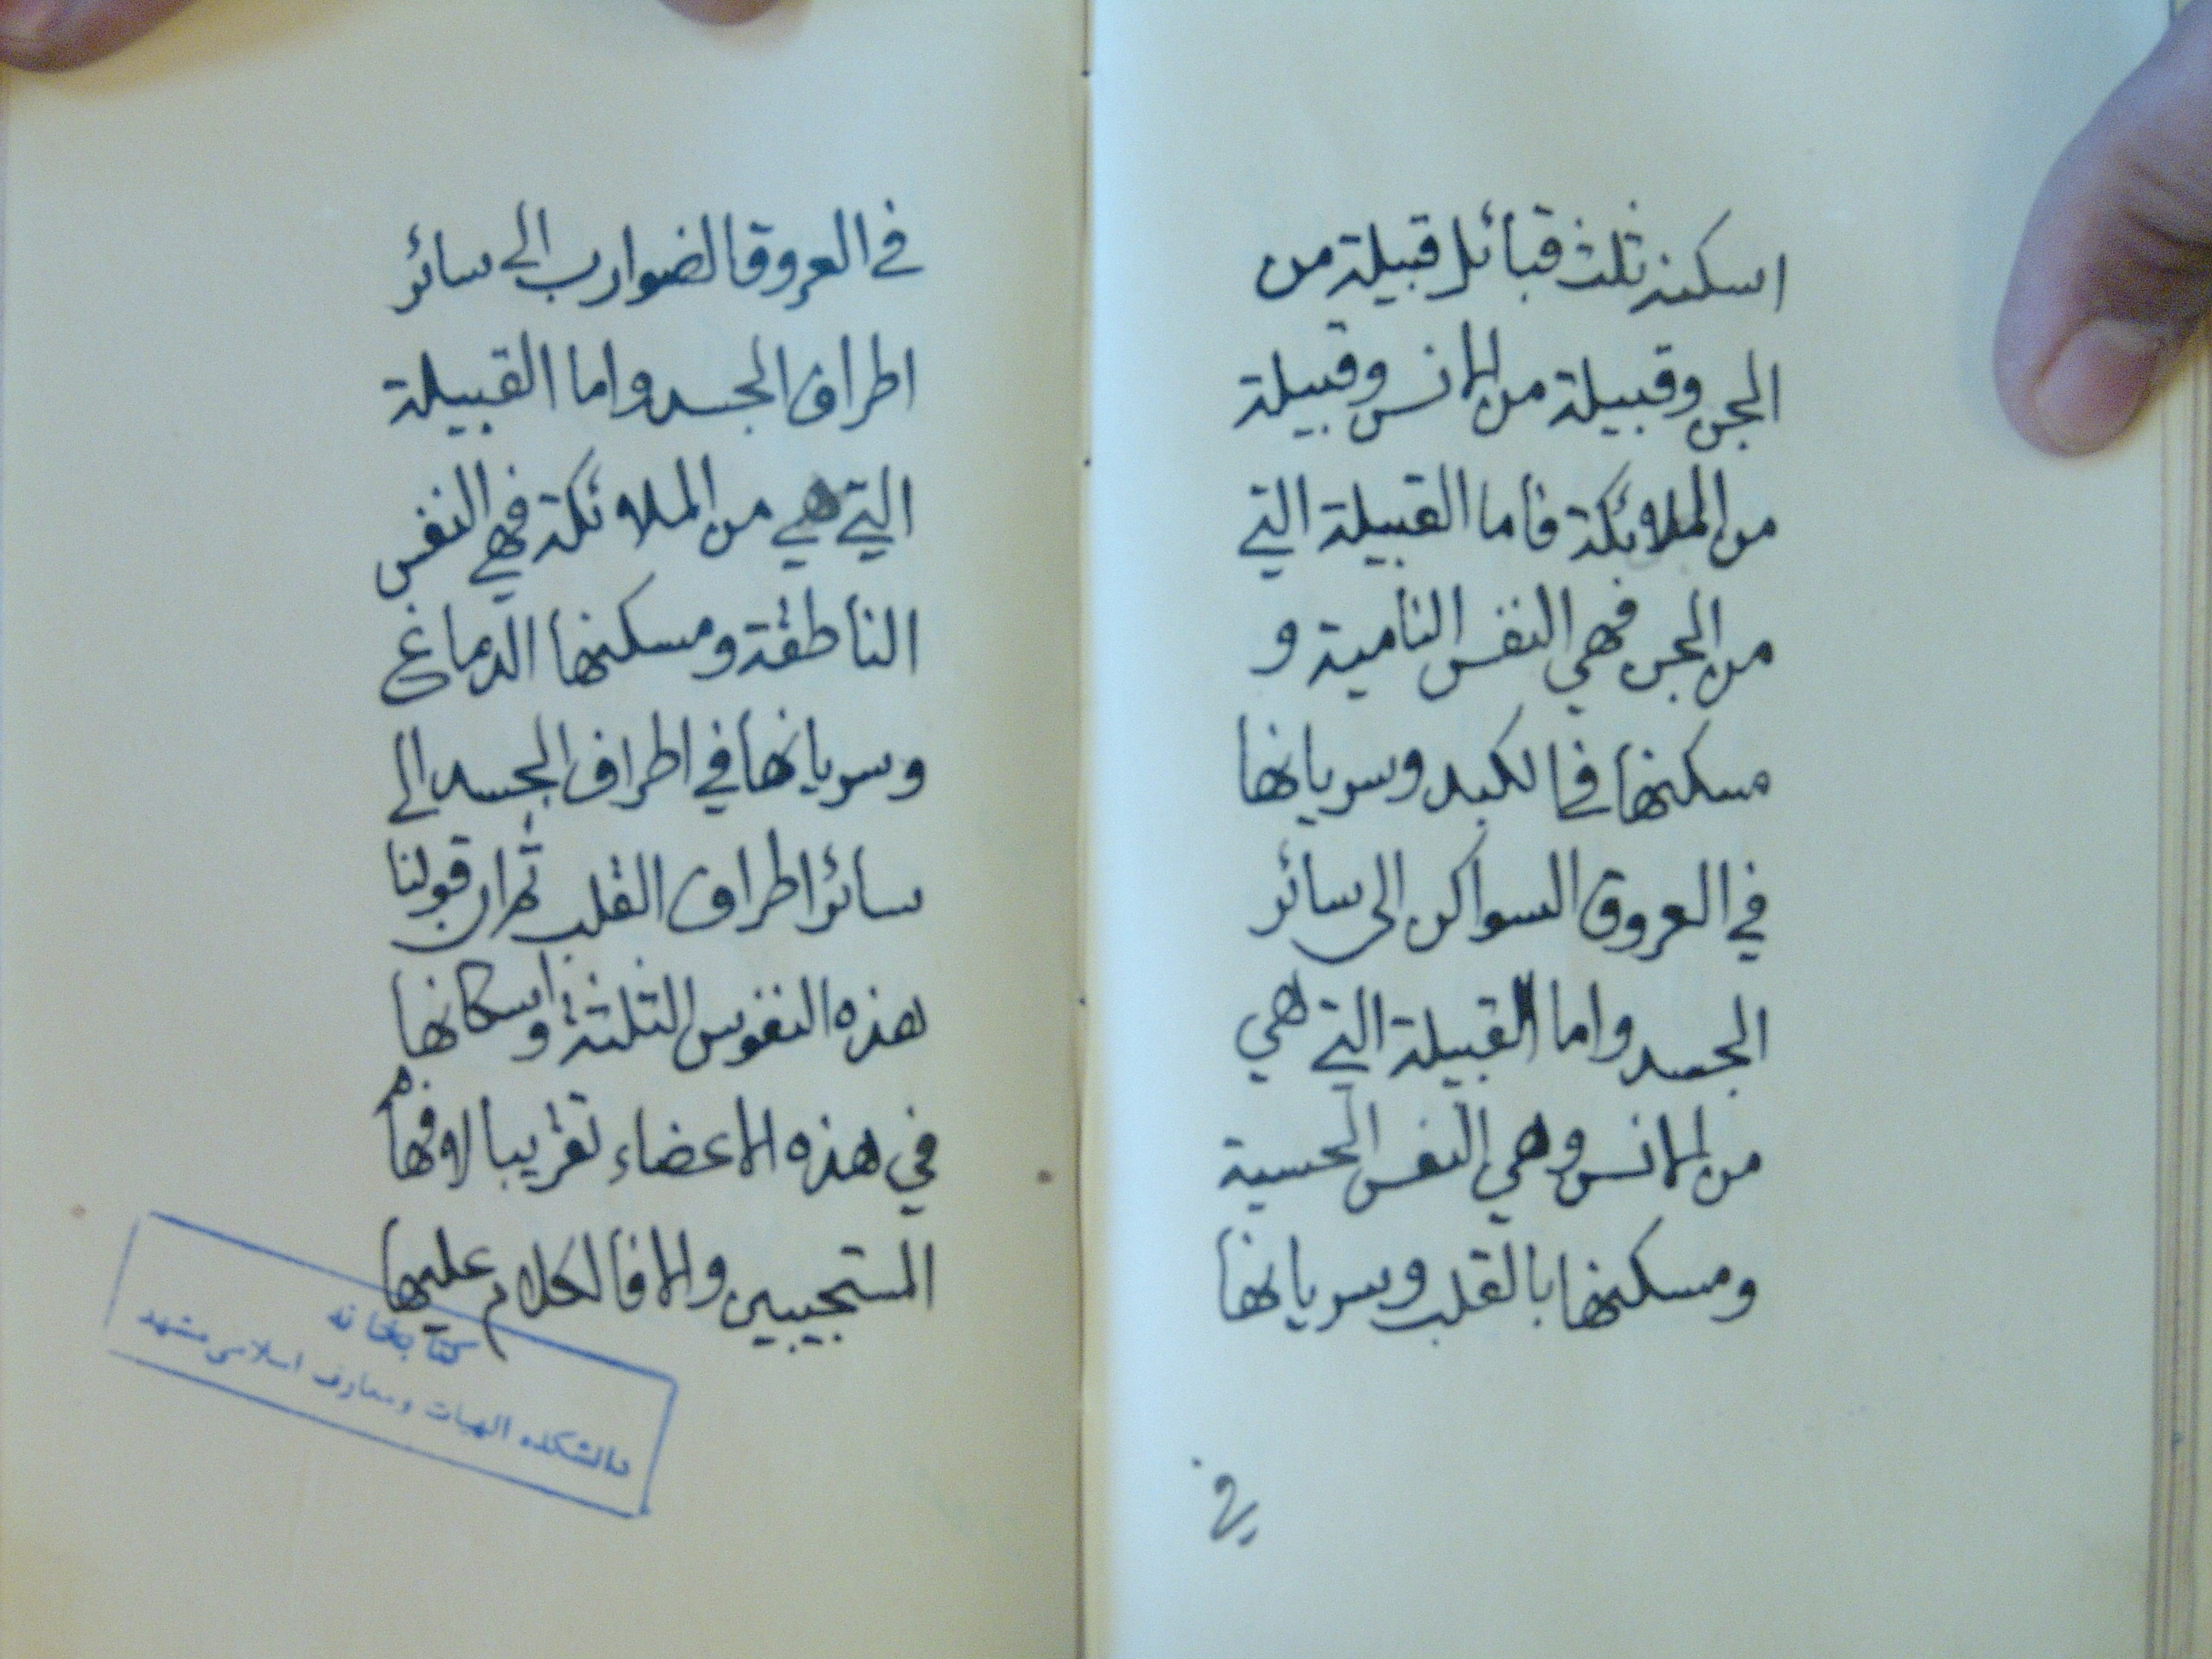 اسكنه ثلث قبائل قبيلة من
الجن وقبيلة من الانس وقبيلة
من الملائكة فاما القبيلة التي
من الجن فهي النفس النامية و
مسكنها في الكبد وسريانها
في العروق السواكن الى سائر
الجسد واما القبيلة التي هي
من الانس وهي النفس الحسية
ومسكنها بالقلب وسريانها
في
في العروق الضوارب الى سائر
اطراف الجسد واما القبيلة
التي هي من الملائكة فهي النفس
الناطقة ومسكنها الدماغ
وسريانها في اطراف الجسد الى
سائر اطراف القلب ثم ان قولنا
هذه النفوس الثلثة واسكانها
في هذه الاعضاء تقريبا لافهام
المستجيبين والا فالكلام عليها
كتابخانه
دانشكده الهيات ومعارف اسلامى مشهد